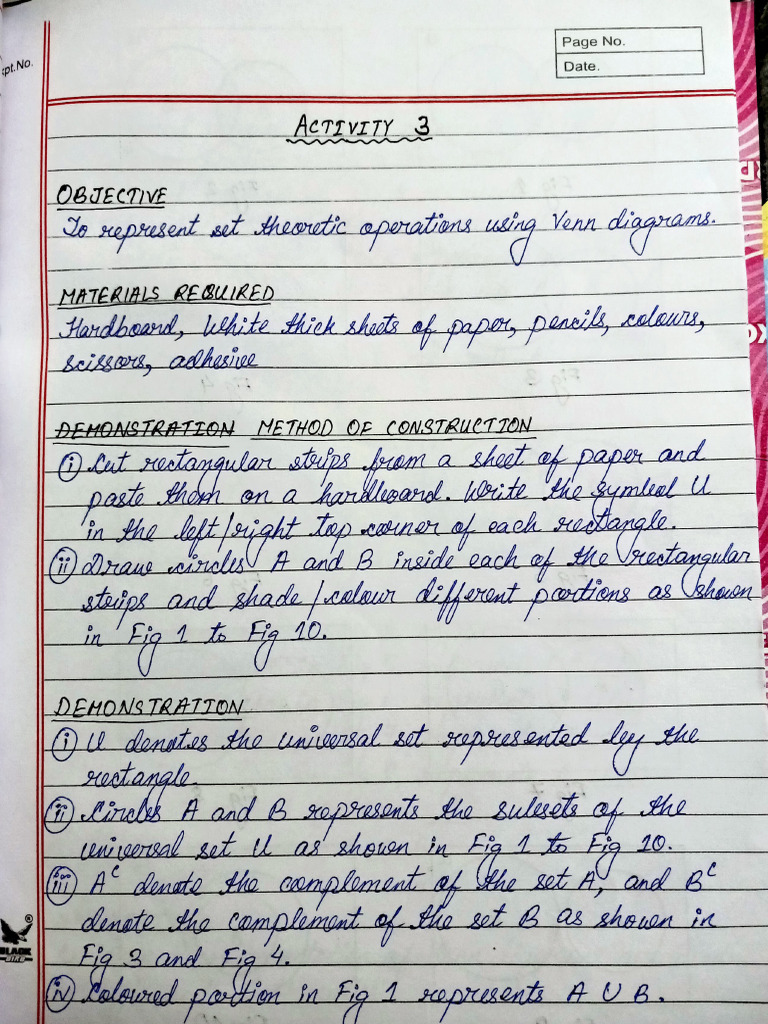 Expt.No.
Page No.
Date.
ACTIVITY 3
OBJECTIVE
To represent set theoretic operations using Venn diagrams.
MATERIALS REQUIRED
Hardboard, White thick sheets of paper, pencils, colours,
scissors, adhesive
DEMONSTRATION METHOD OF CONSTRUCTION
(i) Cut rectangular strips from a sheet of paper and
paste them on a hardboard. Write the symbol U
in the left/right top corner of each rectangle.
(ii) Draw circles A and B inside each of the rectangular
strips and shade/colour different portions as shown
in Fig 1 to Fig 10.
DEMONSTRATION
(i) U denotes the universal set represented by the
rectangle.
(ii) Circles A and B represents the subsets of the
universal set U as shown in Fig 1 to Fig 10.
(iii) Aᶜ denote the complement of the set A, and Bᶜ
denote the complement of the set B as shown in
Fig 3 and Fig 4.
BLACK
(iv) Coloured portion in Fig 1 represents A ∪ B.